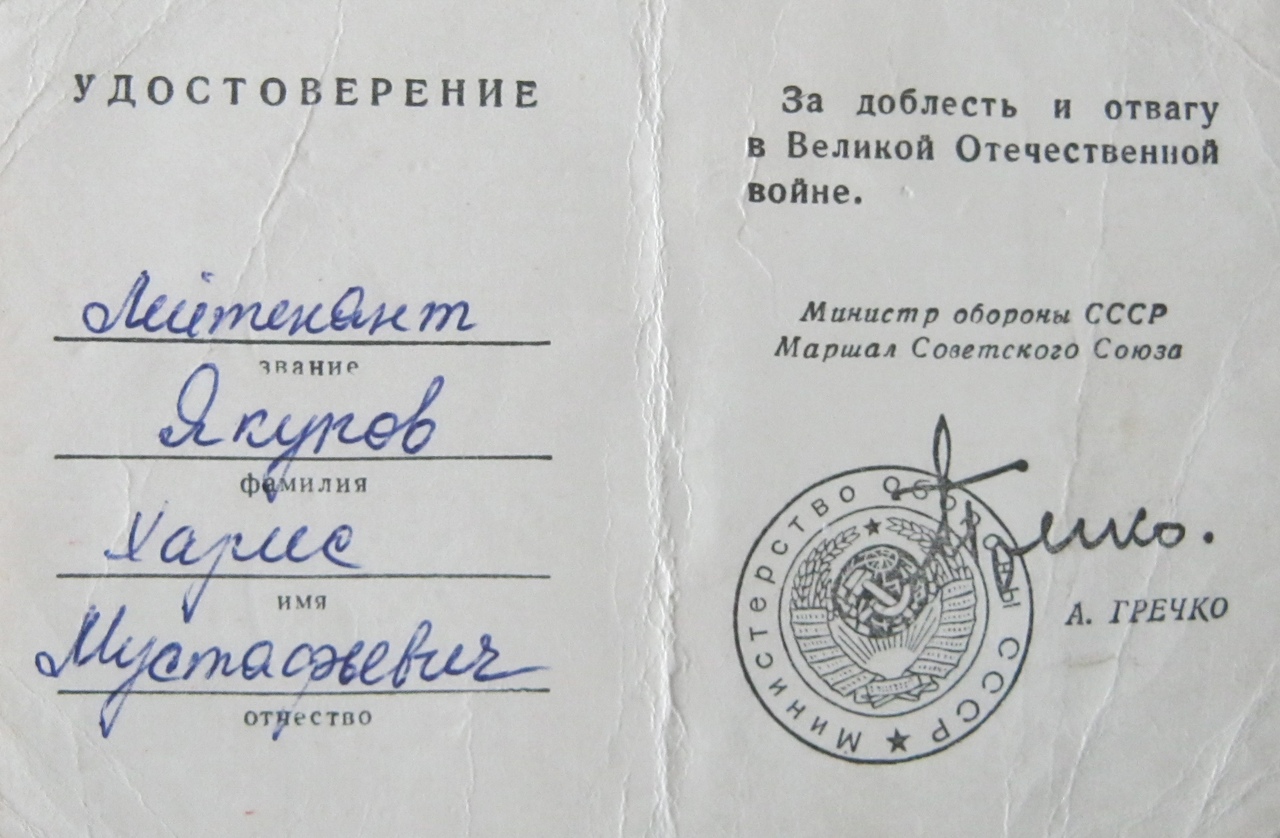 УДОСТОВЕРЕНИЕ
Лейтенант
звание
Якупов
фамилия
Харис
имя
Мустафьевич
отчество
За доблесть и отвагу
в Великой Отечественной
войне.
Министр обороны СССР
Маршал Советского Союза
Гречко.
Министерство Обороны СССР
А. ГРЕЧКО